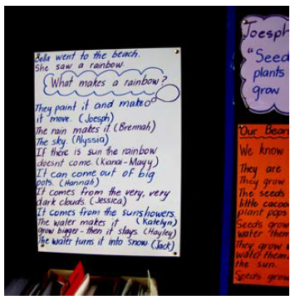 Bella went to the beach.
She saw a rainbow.
What makes a rainbow?
They paint it and make
it move. (Joesph)
The rain makes it (Brennah)
The sky. (Alyssia)
If there is sun the rainbow
doesnt come. (Kiana-Mary)
It can come out of big
pots. (Hannah)
It comes from the very, very
dark clouds. (Jessica)
It comes from the sunshowers.
The water makes it (Katelyn)
grow bigger - then it stays. (Hayley)
The water turns it into snow (Jack)
Joesph
"Seed
plants
grow
Our Bean
We know
They are
They grow
The seeds
little cocoo
plant pops
Seeds grow
water them
They grow
water them
the sun.
Seeds grow